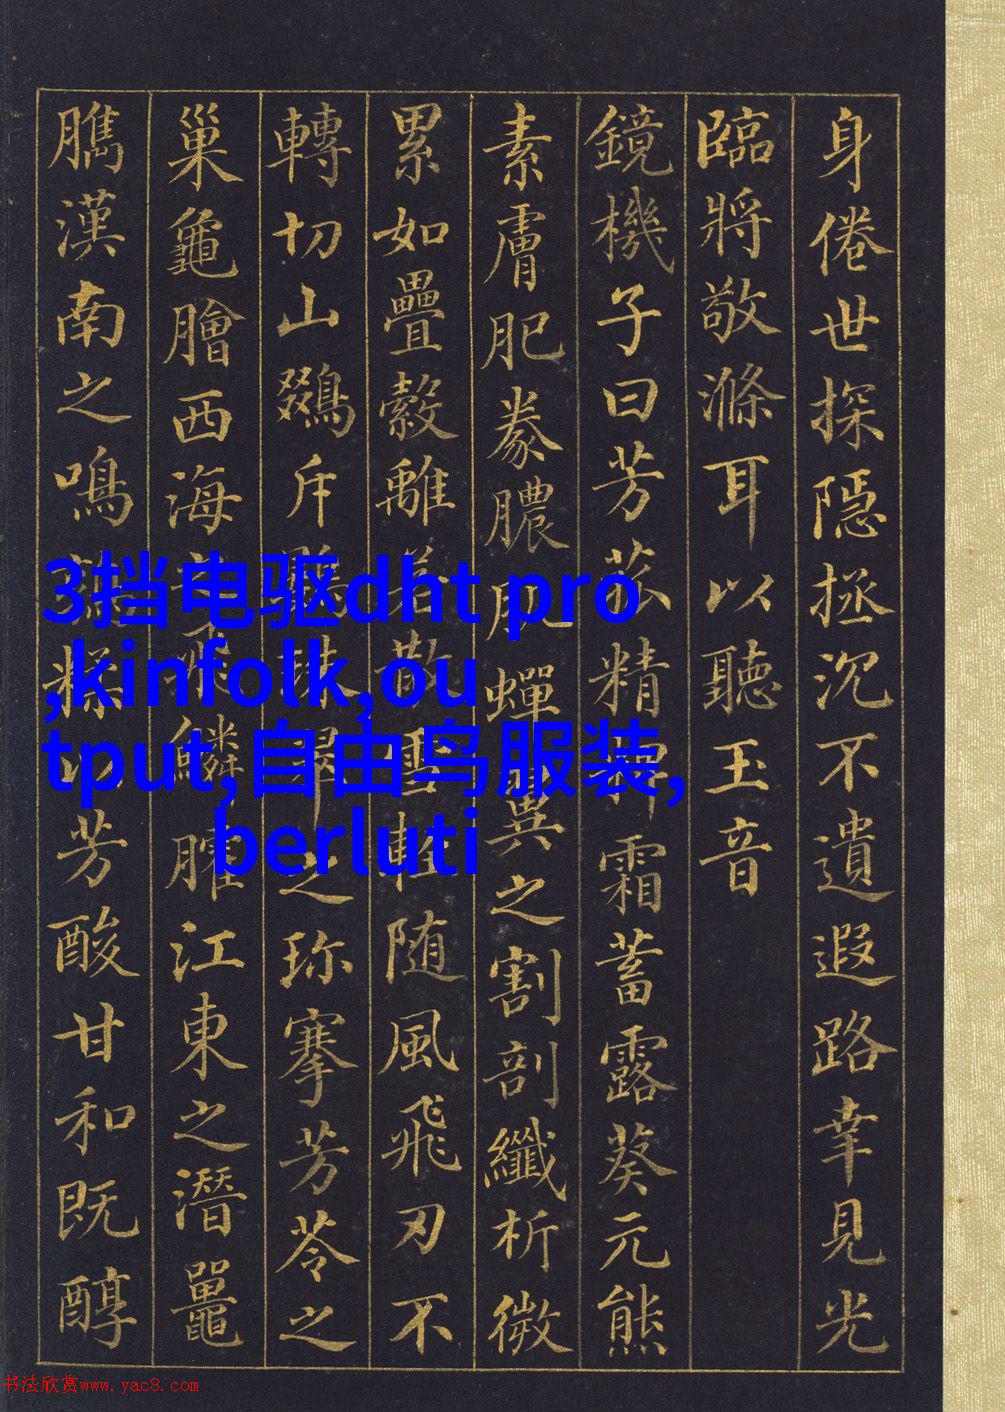 身倦世探隱拯沉不遺遐路幸見光
臨將敬滌耳以聽玉音
鏡機子曰芳菰精粺霜蓄露葵元熊
素膚肥豢膿肌蟬翼之割剖纖析微
累如疊縠離若散雪輕随風飛刃不
轉切山鵽斥鷃珠翠之珍搴芳苓之
巢龜膾西海飛鱗臛江東之潛鼉
臇漢南之鳴鶉糅以芳酸甘和既醇
3挡电驱dht pro
,kinfolk,ou
tput,自由鸟服装,
berluti
书法欣赏www.yac8.com